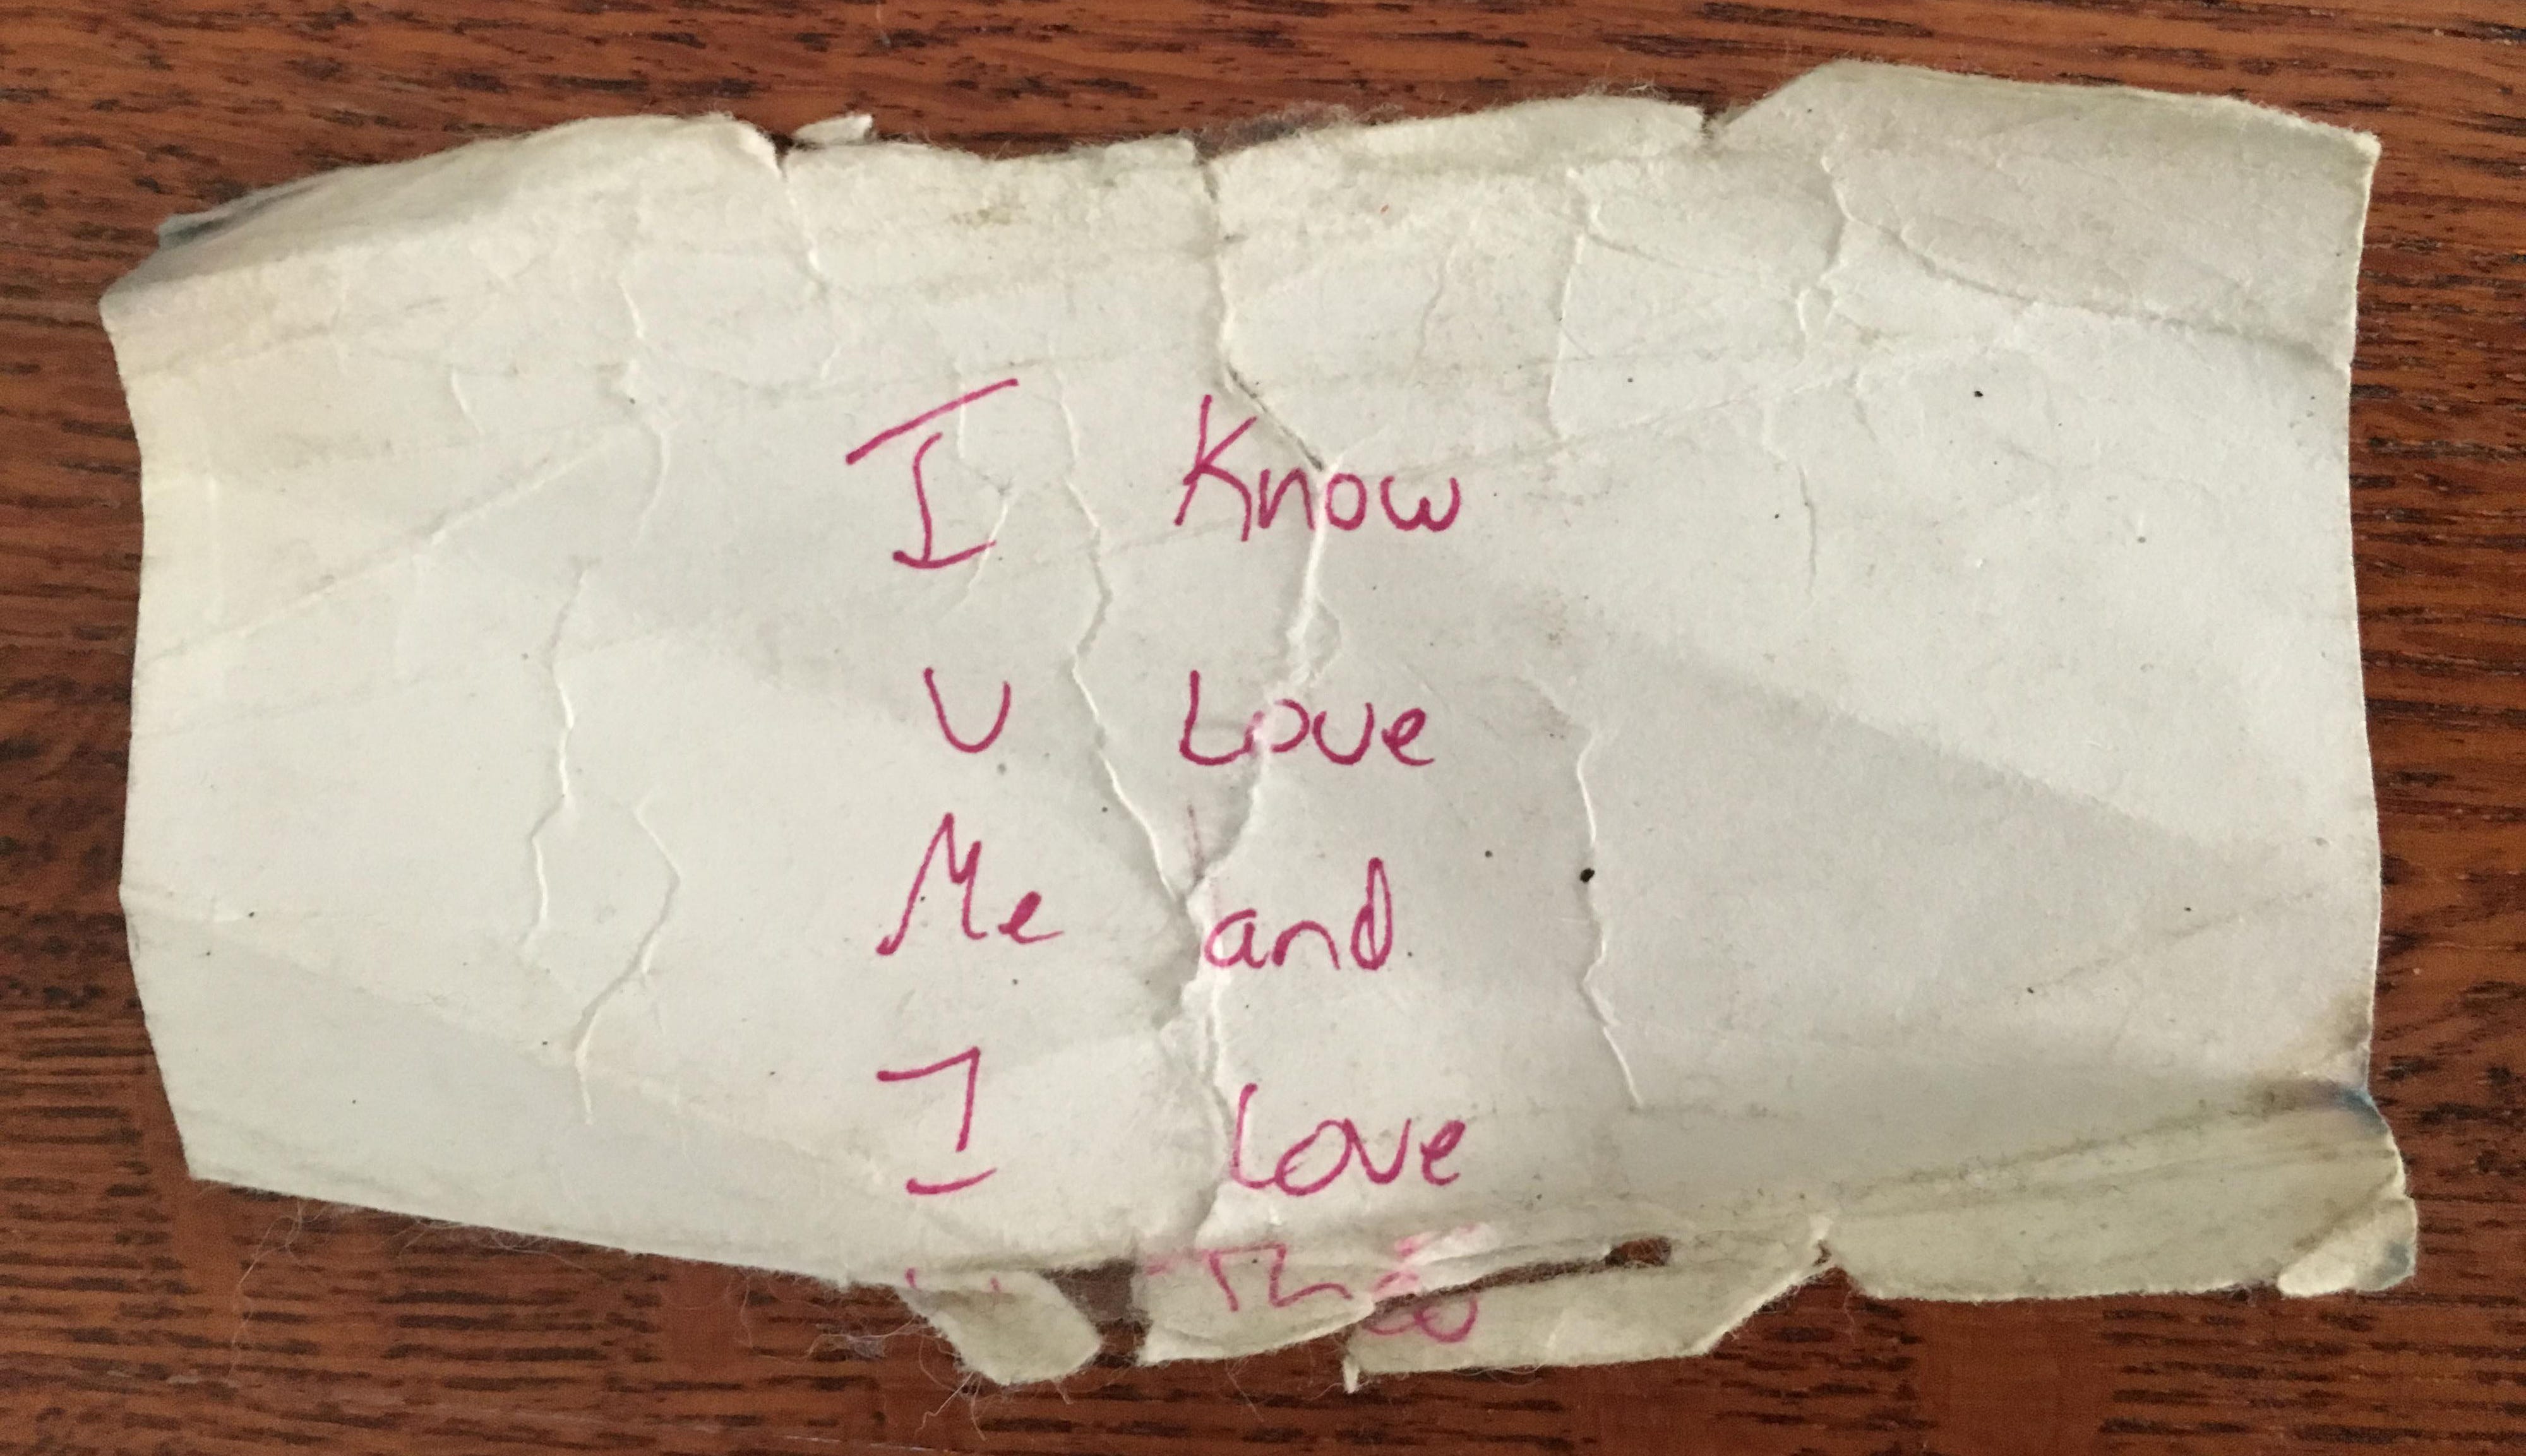 I Know
U Love
Me and
I Love